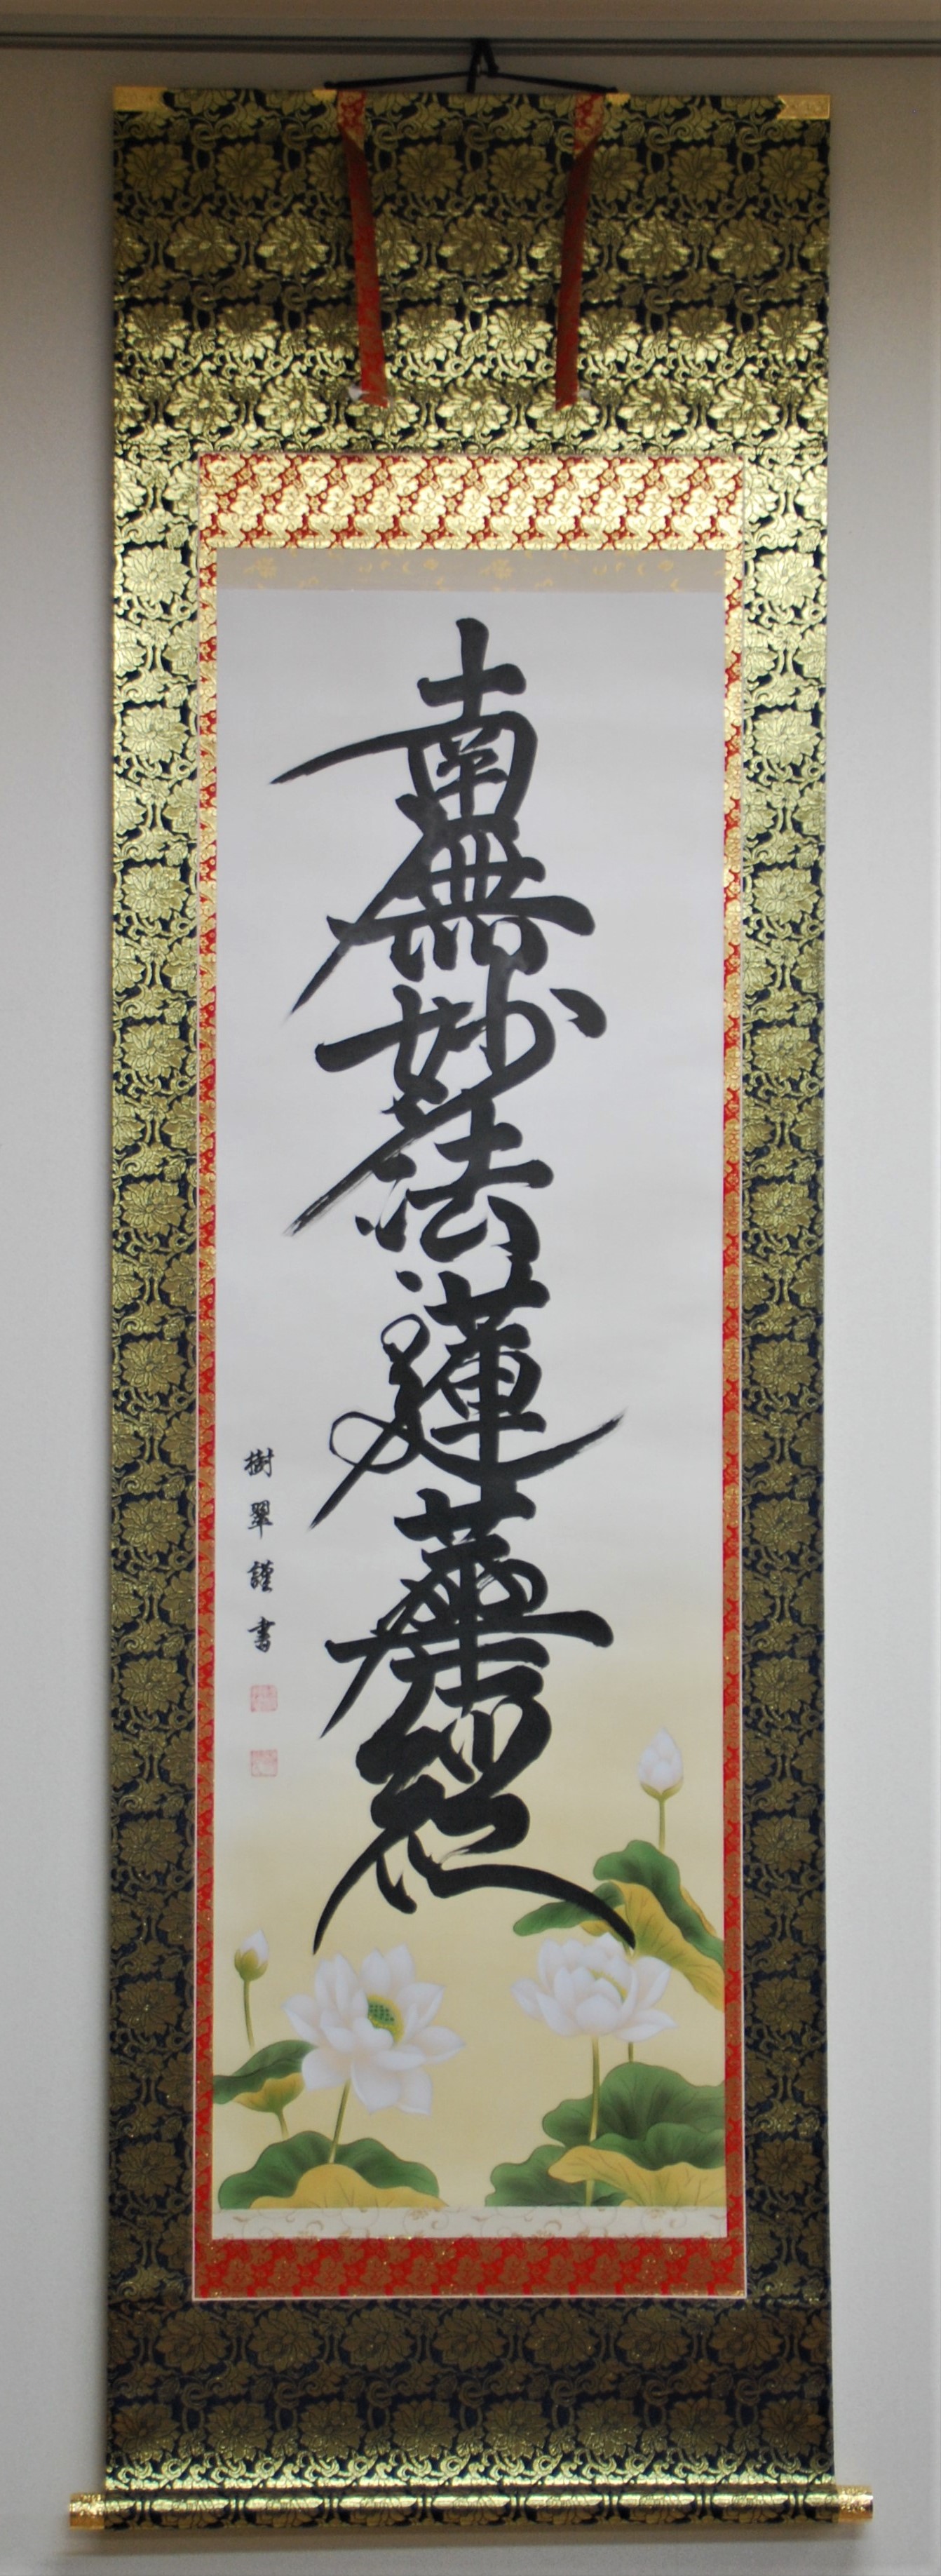 南無妙法蓮華經
樹翠謹書